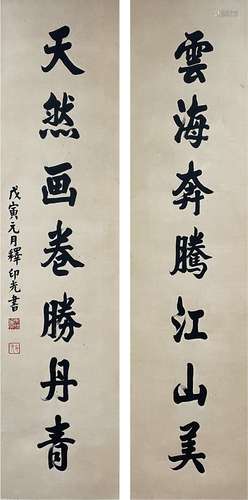 雲海奔騰江山美
天然画卷勝丹青
戊寅元月釋印光書